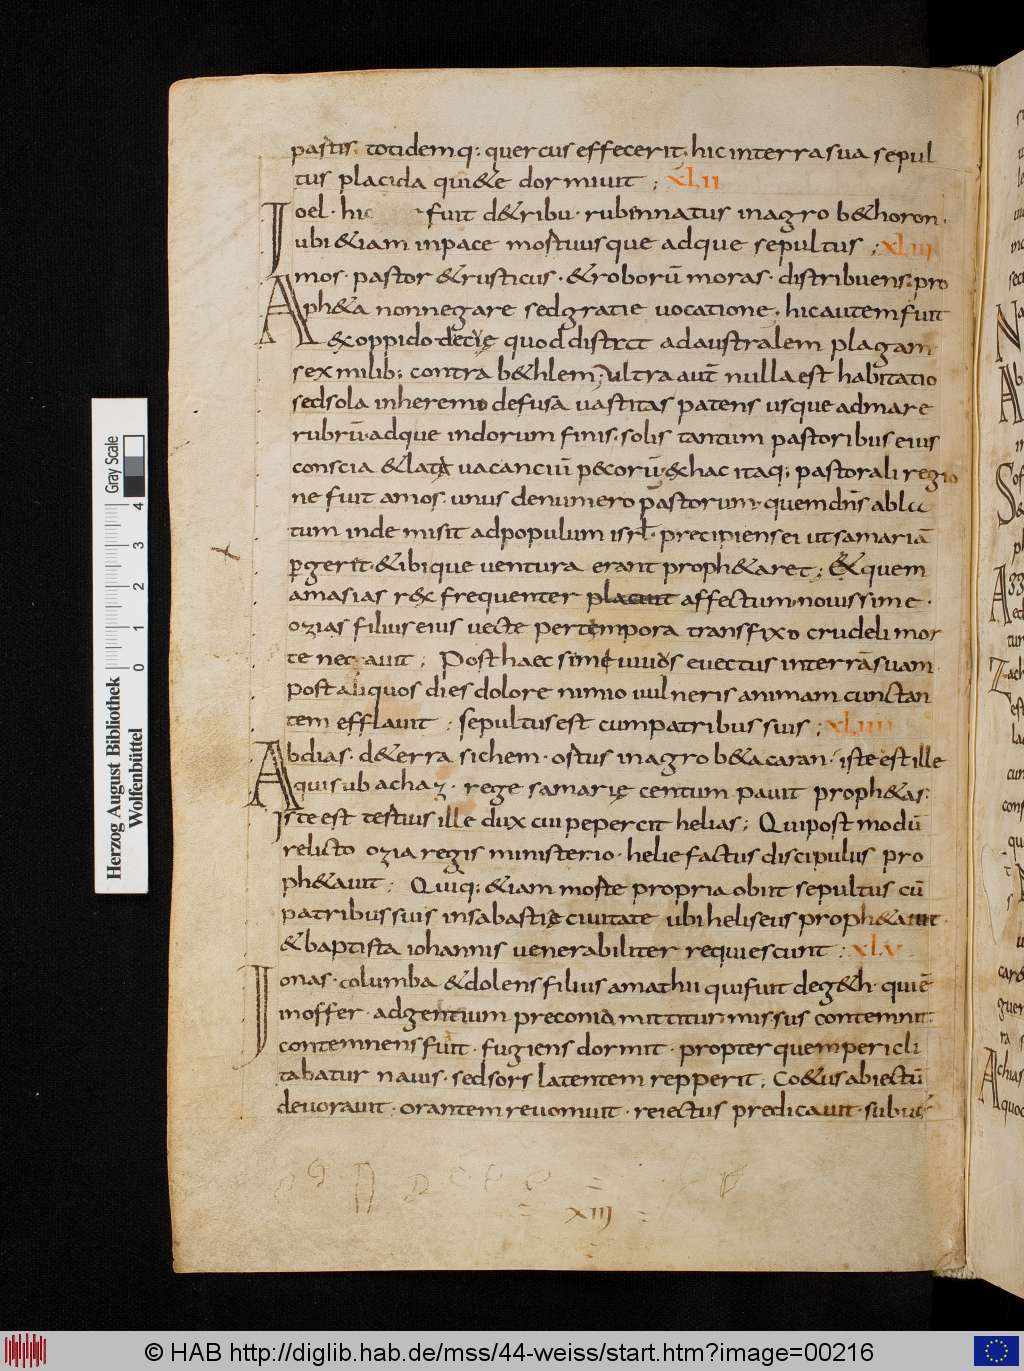 pastis. totidemq; quercus effecerit; hic in terra sua sepul
tus placida quiete dormiuit ; XLII
Ioel. hic fuit detribu. ruben natus in agro bethoron.
ubi etiam in pace mostuus que adque sepultus ; XLIII
Amos. pastor et rusticus. et roborū moras. distribuens. pro
pheta non negare sed gratie uocatione. hic autem fuit
ex oppido quod distat ad australem plagam
sex milib; contra bethlem; ultra aut nulla est habitatio
sed sola in heremo defusa uastitas patens usque ad mare
rubrū. adque indorum finis. solis tantum pastoribus eius
conscia et late uacanciū pecorū. et hac itaq; pastorali regio
ne fuit amos. unus de numero pastorum. quem dn̄s ablu
tum inde misit ad populum isrl. precipiens ei ut samariā
pergerit. et ibi que uentura erant prophetaret ; Et quem
amasias rex frequenter placuit affectum. nouissime.
ozias filius eius uecte per tempora transfixo crudeli mor
te necauit ; Post haec semiuiuus euectus in terrā suam.
post aliquos dies dolore nimio uulneris animam cunctan
tem efflauit ; sepultus est cum patribus suis ; XLIIII
Abdias. de terra sichem. ostus in agro betacaran. iste est ille
qui sub achaz. rege samarię centum pauit prophetas.
Iste est testius ille dux cui pepercit helias ; Qui post modū
relicto ozia regis ministerio. helie factus discipulus pro
phetauit ; Quiq; etiam moste propria obiit sepultus cū
patribus suis in sabastię ciuitate ubi heliseus prophetauit.
et baptista iohannis uenerabiliter requiescunt ; XLV
Ionas. columba et dolens filius amathii qui fuit de geth. qui ē
in offer. ad gentium preconia mittitur. missus contemnit.
contemnens fuit. fugiens dormit. propter quem pericli
tabatur nauis. sed sors latentem repperit ; Coetus abiectū
deuorauit. orantem reuomuit. reiectus predicauit. subuer
XIIJ
Herzog August Bibliothek
Wolfenbüttel
0 1 2 3 4
Gray Scale
© HAB http://diglib.hab.de/mss/44-weiss/start.htm?image=00216